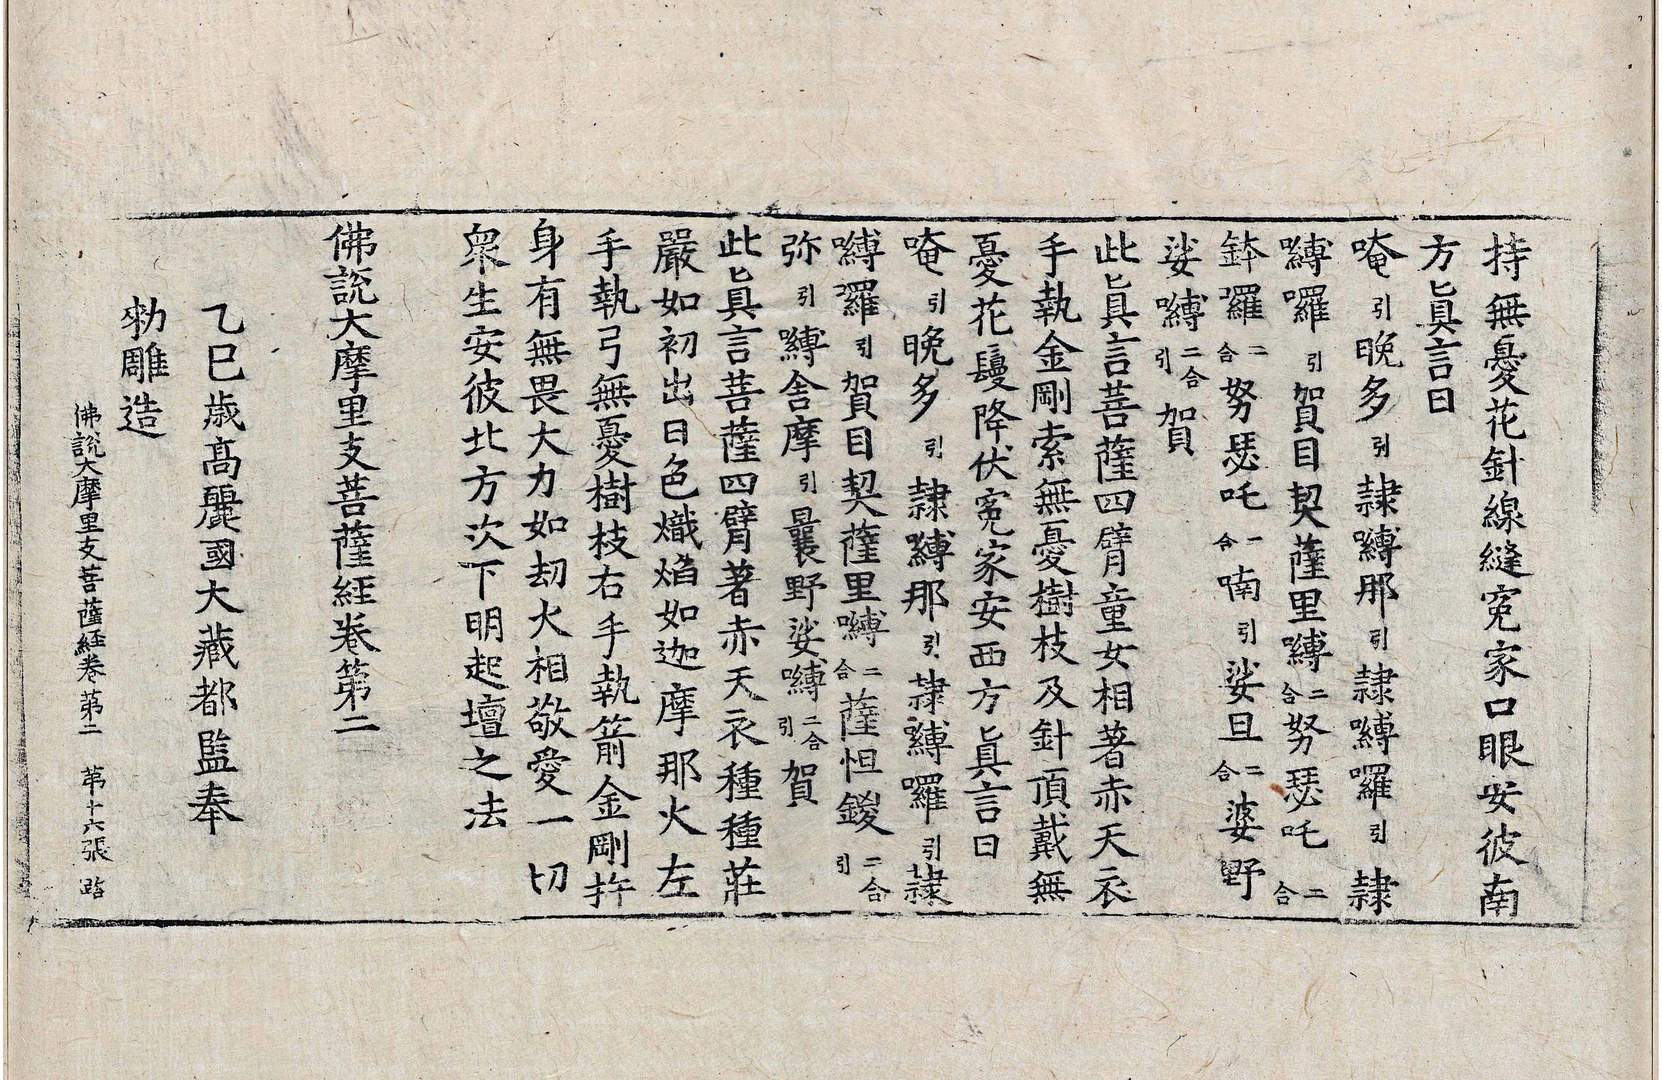 持無憂花針線縫寃家口眼安彼南
方眞言曰
唵引晩多引隷嚩那引隷嚩囉引隷
嚩囉引賀目契薩里嚩二合努瑟吒二合
鉢囉二合努瑟吒一合喃引娑旦二合婆野
娑嚩二合引賀
此眞言菩薩四臂童女相著赤天衣
手執金剛索無憂樹枝及針頂戴無
憂花鬘降伏寃家安西方眞言曰
唵引晩多引隷嚩那引隷嚩囉引隷
嚩囉引賀目契薩里嚩二合薩怛鑁二合引
弥引嚩舍摩引曩野娑嚩二合引賀
此眞言菩薩四臂著赤天衣種種莊
嚴如初出日色熾焰如迦摩那火左
手執弓無憂樹枝右手執箭金剛杵
身有無畏大力如劫火相敬愛一切
衆生安彼北方次下明起壇之法
佛說大摩里支菩薩經卷第二
乙巳歳高麗國大藏都監奉
勅雕造
佛說大摩里支菩薩經卷第二 第十六張